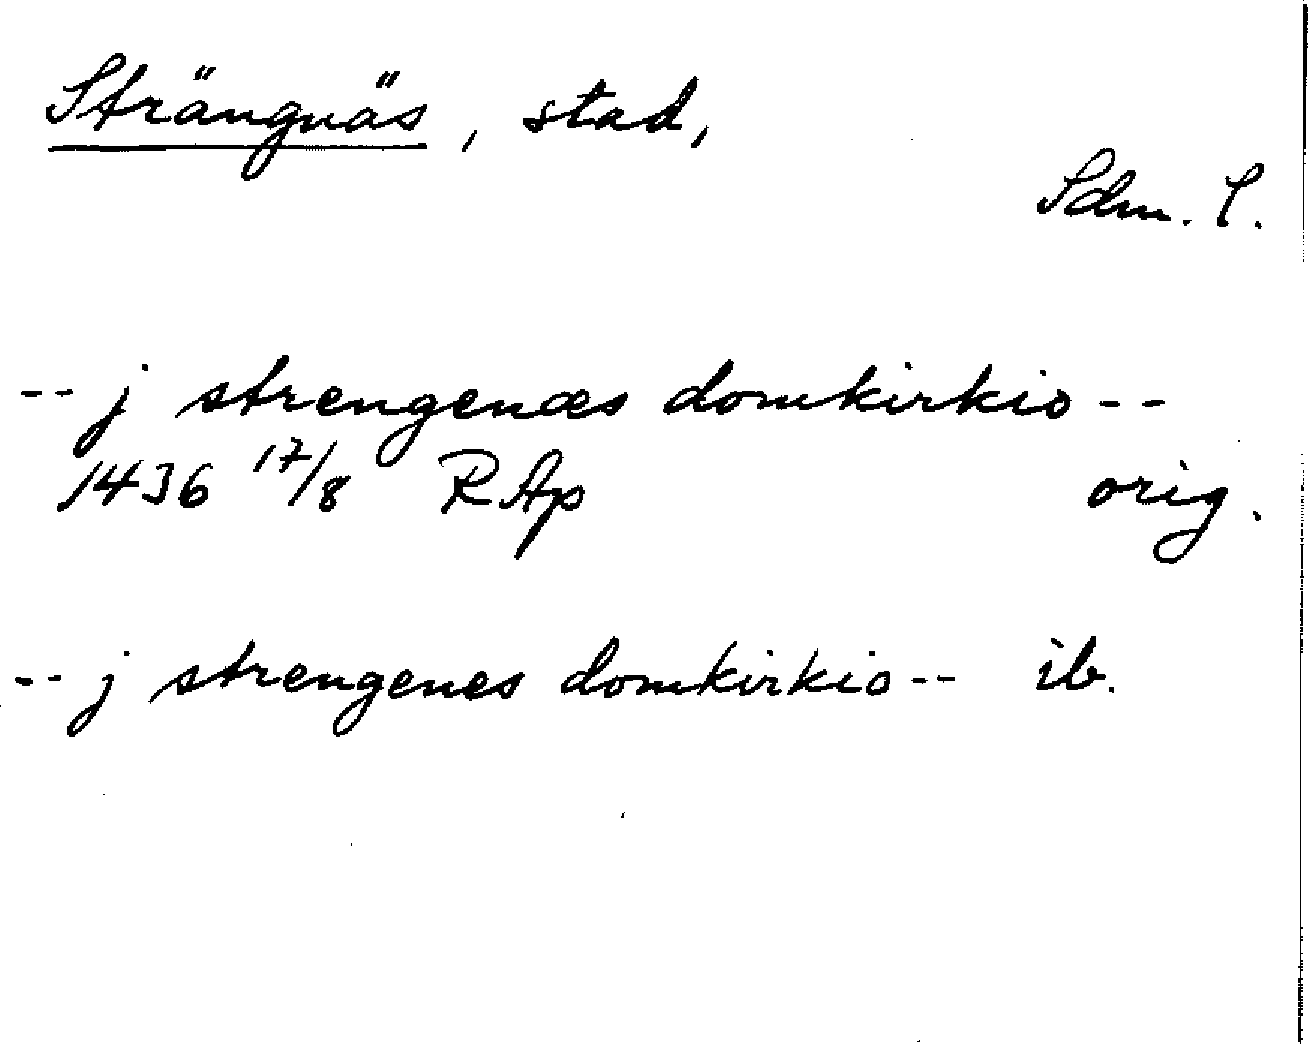 Strängnäs, stad,
Sdm. l.
-- j strengenæs domkirkio --
1436 17/8 RAp orig.
-- j strengenes domkirkio -- ib.